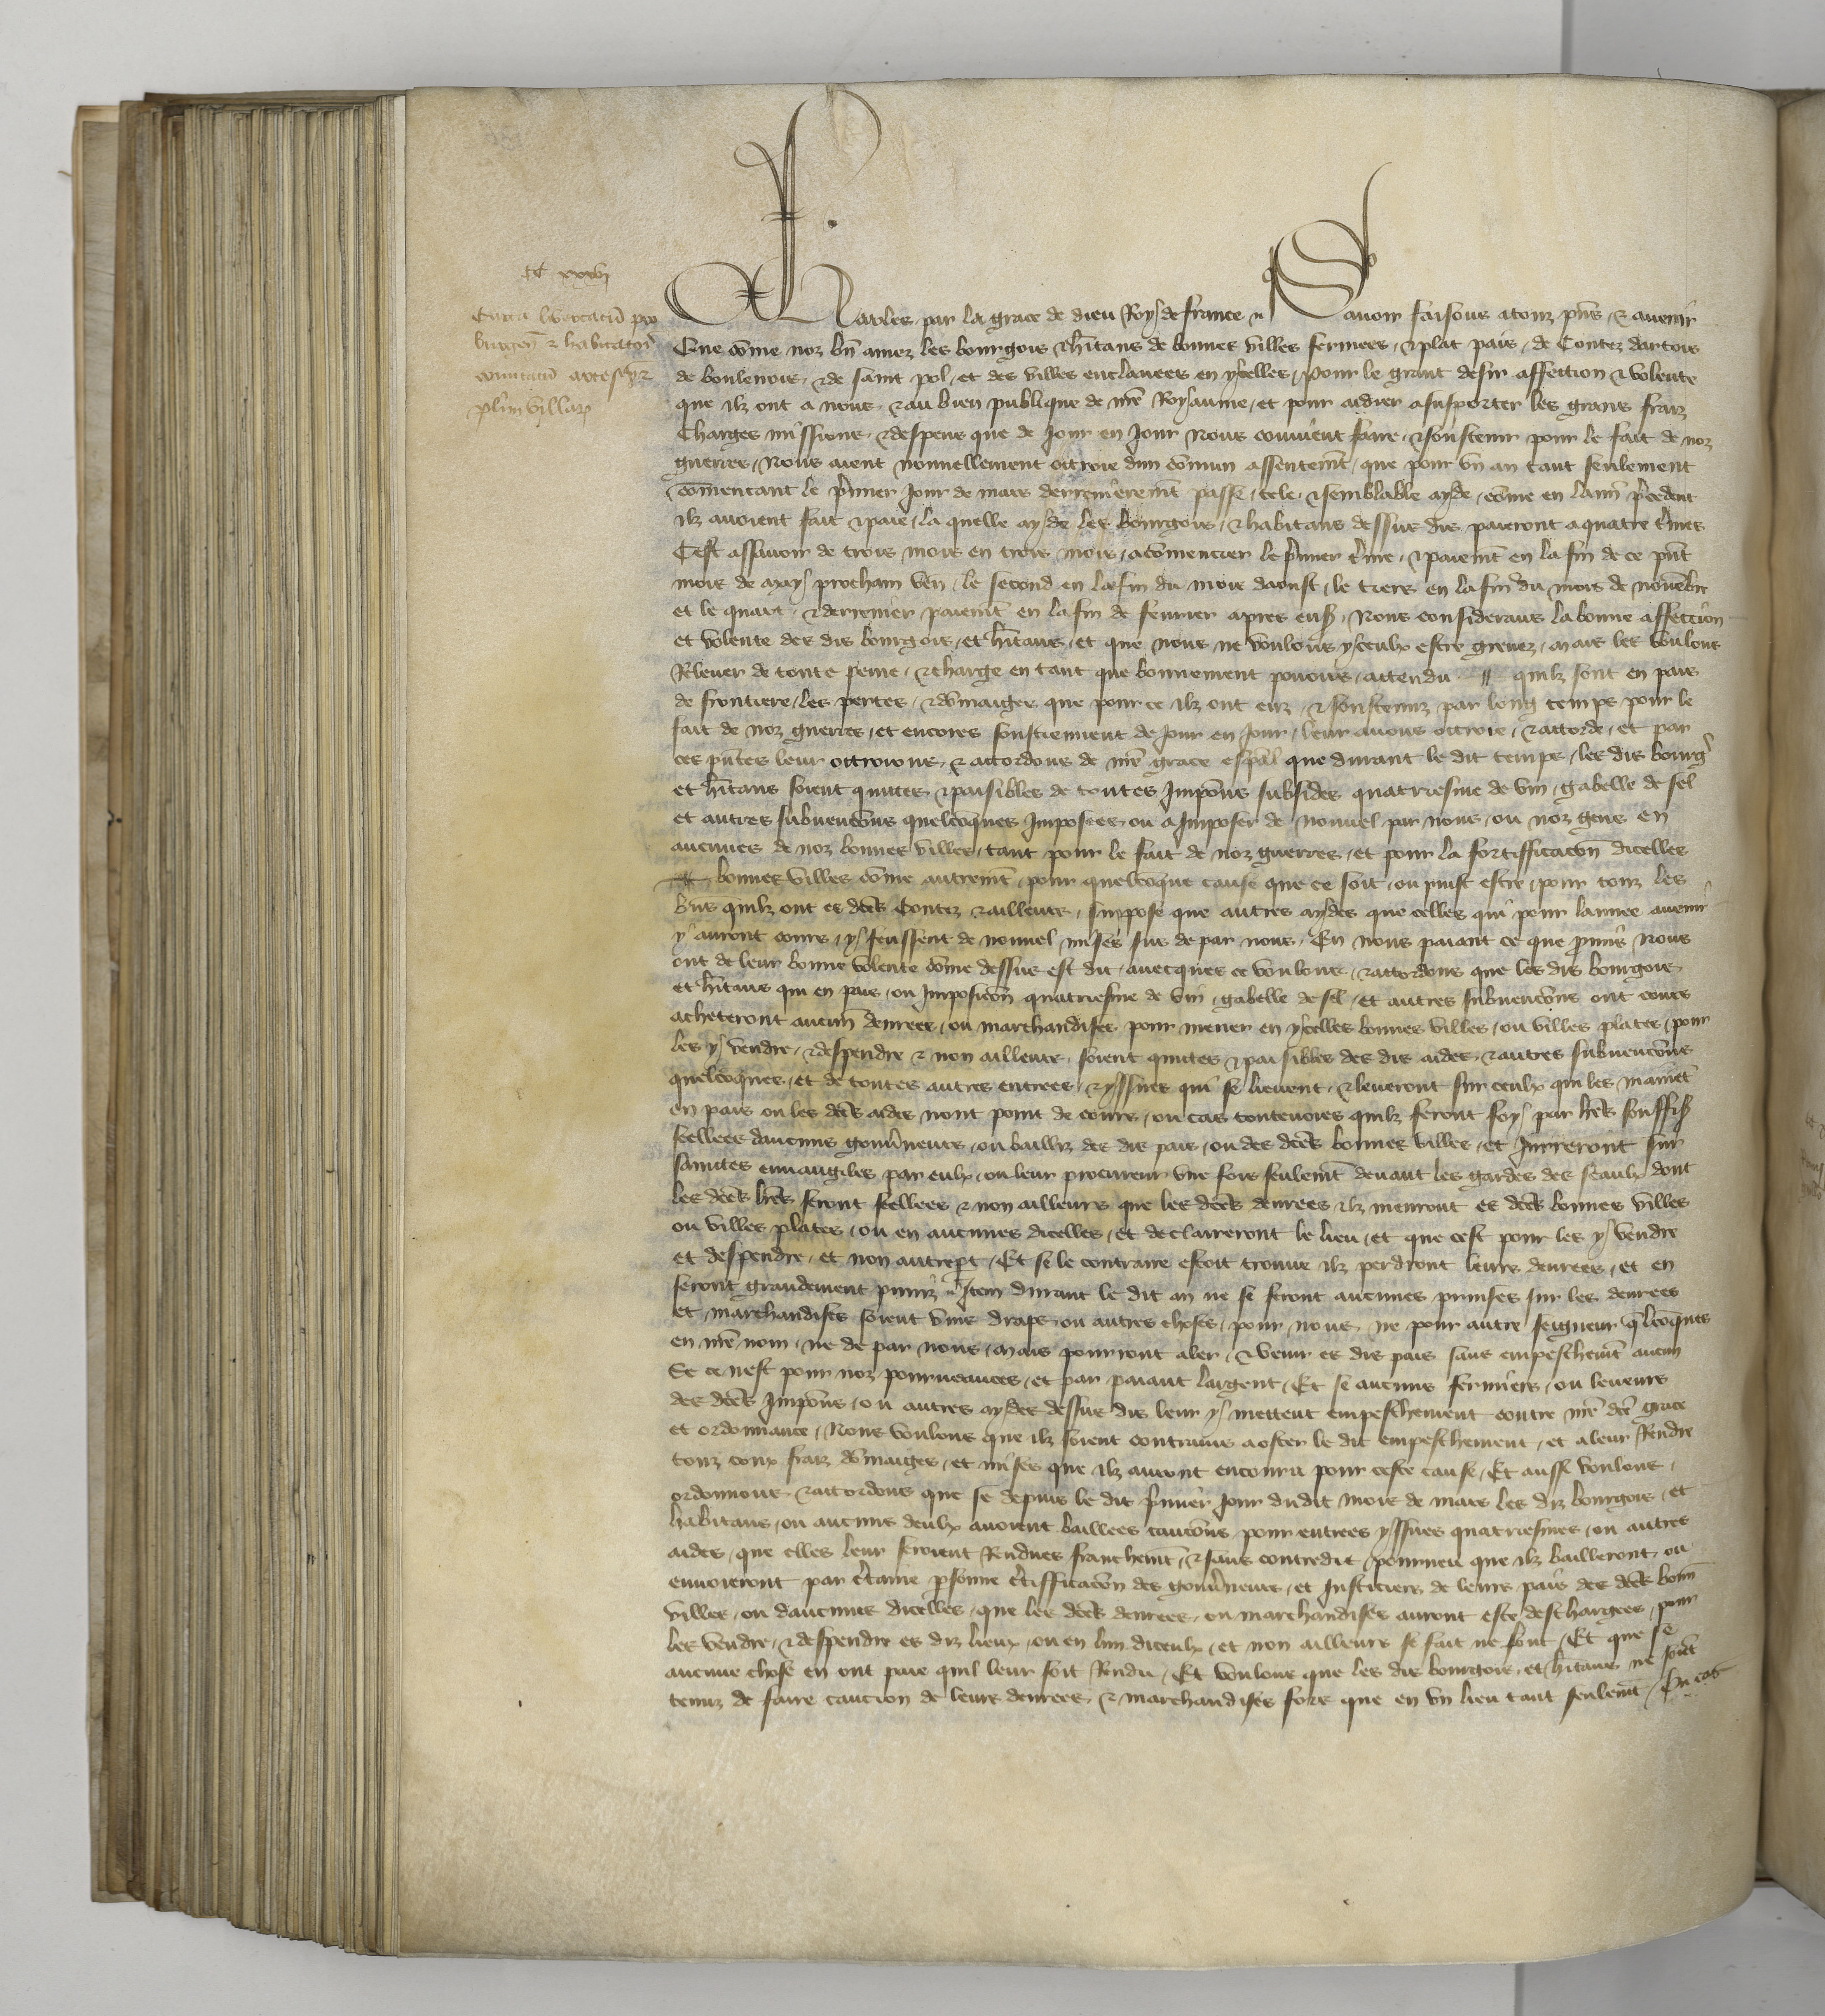 CC xxxvi
Carta libertatum pro
burgen̄ & habitator̄
comitatū
plim villar
Charles par la grace de dieu Roy de france Savoir faisons a touz pn̄s & avenir
Que cōme noz bn̄ amez les bourgois & hītans de bonnes villes fermees & plat pais de Contez dartois
de boulenois & de saint pol et des villes enclavees en ycelles pour le grant desir affection & volente
que ilz ont a nous & au bien publique de nr̄e Royaume et pour aidier a suporter les grans fraiz
Charges missions & despens que de Jour en Jour Nous convient faire & soustenir pour le fait de noz
guerres Nous aient nouvellement ottroie dun cōmun assentemt̄ que pour un an tant seulement
cōmencant le p̄mier Jour de mars derrenieremt̄ passe tele & semblable ayde cōme en lann̄ p̄cedent
ilz avoient fait & paie la quelle ayde les bourgois & habitans dessus dis paieront a quatre t̄mes
Cest assavoir de trois mois en trois mois a cōmencier le p̄mier t̄me & paiemt̄ en la fin de ce pn̄t
mois de may prochain ven̄ le second en la fin du mois daoust le tiers en la fin du mois de novēbre
et le quart & derrenier paiemt̄ en la fin de fevrier apres ens̄ Nous considerans la bonne affection
et volente des dis bourgois et hītans et que nous ne voulons yceulx estre grevez mais les voulons
Relever de toute peine & charge en tant que bonnement povons attendu quilz sont en pais
de frontiere les pertes & dōmaiges que pour ce ilz ont euz & soustenuz par long temps pour le
fait de noz guerres et encores soustiennent de Jour en Jour leur avons ottroie & accorde et par
ces pn̄tes leur ottroions & accordons de nr̄e grace esp̄al que durant le dit temps les dis bourḡ
et hītans soient quittes & paisibles de toutes Impōns subsides quatriesme de vin gabelle de sel
et autres subvencōns quelcōques Imposees ou a Imposer de nouvel par nous ou noz gens en
aucunes de noz bonnes villes tant pour le fait de noz guerres et pour la fortifficacōn dicelles
bonnes villes cōme autremt̄ pour quelcōque cause que ce soit ou puist estre pour touz les
bn̄s quilz ont es dc̄es Contez & ailleurs suppose que autres aydes que celles qui pour lannee avenir
y auront cours y feussent de nouvel mises sus de par nous En nous paiant ce que p̄mis Nous
ont de leur bonne volente cōme dessus est dit avecques ce voulons & accordons que les dis bourgois
et hītans qui en pais ou Imposicōn quatriesme de vin gabelle de sel et autres subvencōns ont cours
acheteront aucun̄ denrees ou marchandises pour mener en ycelles bonnes villes ou villes plates pour
les y vendre & despendre & non ailleurs soient quittes & paisibles des dis aides & autres subvencōns
quelcōques et de toutes autres entrees & yssues qui se lievent & leveront sur ceulx qui les mainēt
en pais ou les dc̄es aides nont point de cours ou cas toutevoies quilz feront foy par lr̄es souffis̄
seellees daucuns gouv̄neurs ou bailliz des dis pais ou des dc̄es bonnes villes et Jurreront sur
saintes euvangiles par eulx ou leur procureur une fois seulemt̄ devant les gardes des seaulx dont
les dc̄es lr̄es seront seellees & non ailleurs que les dc̄es denrees ilz menront es dc̄es bonnes villes
ou villes plates ou en aucunes dicelles et declaireront le lieu et que cest pour les y vendre
et despendre et non autrep̄t Et se le contraire estoit trouve ilz perdront leurs denrees et en
seront grandement puniz Item durant le dit an ne se feront aucunes prinses sur les denrees
et marchandises soient vins draps ou autres choses pour nous ne pour autre seigneur q̄lcōques
en nr̄e nom ne de par nous mais pourront aler & venir es dis pais sans empeschemt̄ aucun
Se ce nest pour noz pourveances et par paiant largent Et se aucuns fermiers ou leveurs
des dc̄es Impōns ou autres aydes dessus dis leur y mettent empeschement contre nr̄e dc̄e grace
et ordonnance Nous voulons que ilz soient contrains a oster le dit empeschement et a leur Rendre
touz coux fraiz dōmaiges et mises que ilz auront encouru pour ceste cause Et aussi voulons
ordonnons & accordons que se depuis le dit p̄mier Jour dudit mois de mars les diz bourgois et
habitans ou aucuns deulx avoient baillees caucōns pour entrees yssues quatriesmes ou autres
aides que elles leur seroient Rendues franchemt̄ & sans contredit pourveu que ilz bailleront ou
envoieront par c̄taine p̄sonne c̄tifficacōn des gouv̄neurs et Justiciers de leurs pais des dc̄es bonn̄
villes ou daucunes dicelles que les dc̄es denrees ou marchandises auront este deschargees pour
les vendre & despendre es diz lieux ou en lun diceulx et non ailleurs se fait ne lont Et que se
aucune chose en ont paie quil leur soit Rendu Et voulons que les dis bourgois et hītans ne soiēt
tenuz de faire caucion de leurs denrees & marchandises fors que en un lieu tant seulemt̄ En cas